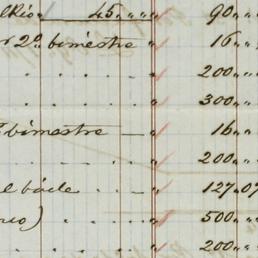 45 „ „ 90 „ „
2º bimestre „ 16 „ „
. . . „ 200 „ „
. . . „ 300 „ „
bimestre — „ 16 „ „
. . . — „ 200 „ „
. . . — „ 127.07
. . . „ 500 „ „
. . . „ 200 „ „